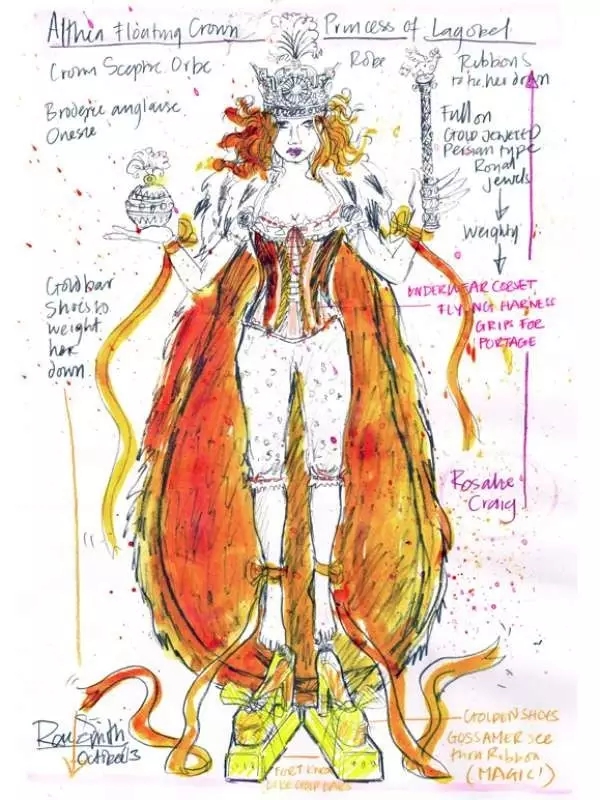 Althea Floating Crown Princess of Lagobel
Crown Sceptre Orbe
Robe
Ribbons
to tie her down
Broderie anglaise
Onesie
Full on
GOLD JEWELED
Persian type
Royal
jewels
Weighty
Goldbar
Shoes to
weight
her
down
UNDERWEAR CORSET
FLYING HARNESS
GRIPS FOR
PORTAGE
Rosalie
Craig
GOLDEN SHOES
GOSSAMER see
thru Ribbon
(MAGIC!)
Rae Smith
October 13
FORT KNOX
LIKE GOLD BARS